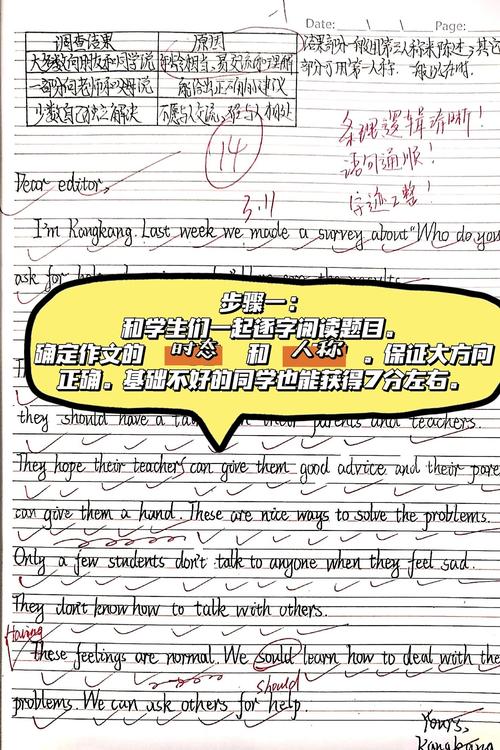 Date: \ \ Page:
调查结果 原因
大多数向朋友和同学说 年龄相当，易交流和理解
一部分向老师和父母说 能给出正确的建议
少数自己独立解决 不愿与人交流，
结果部分一般用第三人称来陈述，其它
部分可用第一人称.一般现在时.
条理逻辑清晰！
语句通顺！
字迹工整！
14
3.11
Dear editor,
I'm Kangkang. Last week we made a survey about "Who do you
ask for
步骤一：
和学生们一起逐字阅读题目。
确定作文的 时态 和 人称 。保证大方向
正确。基础不好的同学也能获得7分左右。
they should have a their parents and teachers.
They hope their teachers can give them good advice and their pare
can give them a hand. These are nice ways to solve the problems.
Only a few students don't talk to anyone when they feel sad.
They don't know how to talk with others.
Having
These feelings are normal. We sould learn how to deal with the
should
problems. We can ask others for help.
Yours,
Kangkang